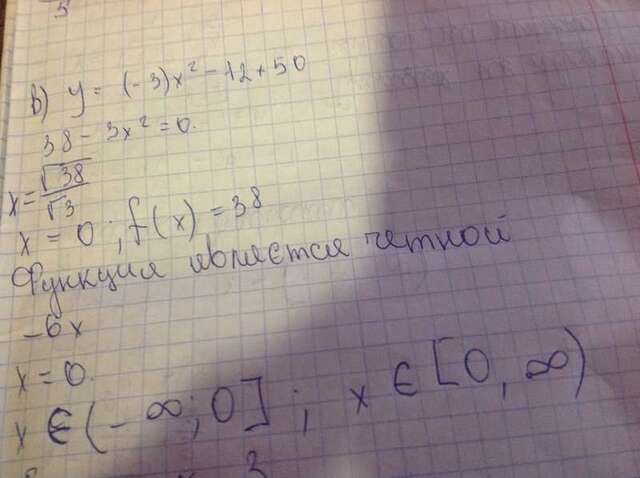 5
в) y = (-3)x² - 12 + 50
38 - 3x² = 0.
x = √38 / √3
x = 0 ; f(x) = 38
Функция является четной
-6x
x = 0.
x ∈ (-∞; 0] ; x ∈ [0, ∞)